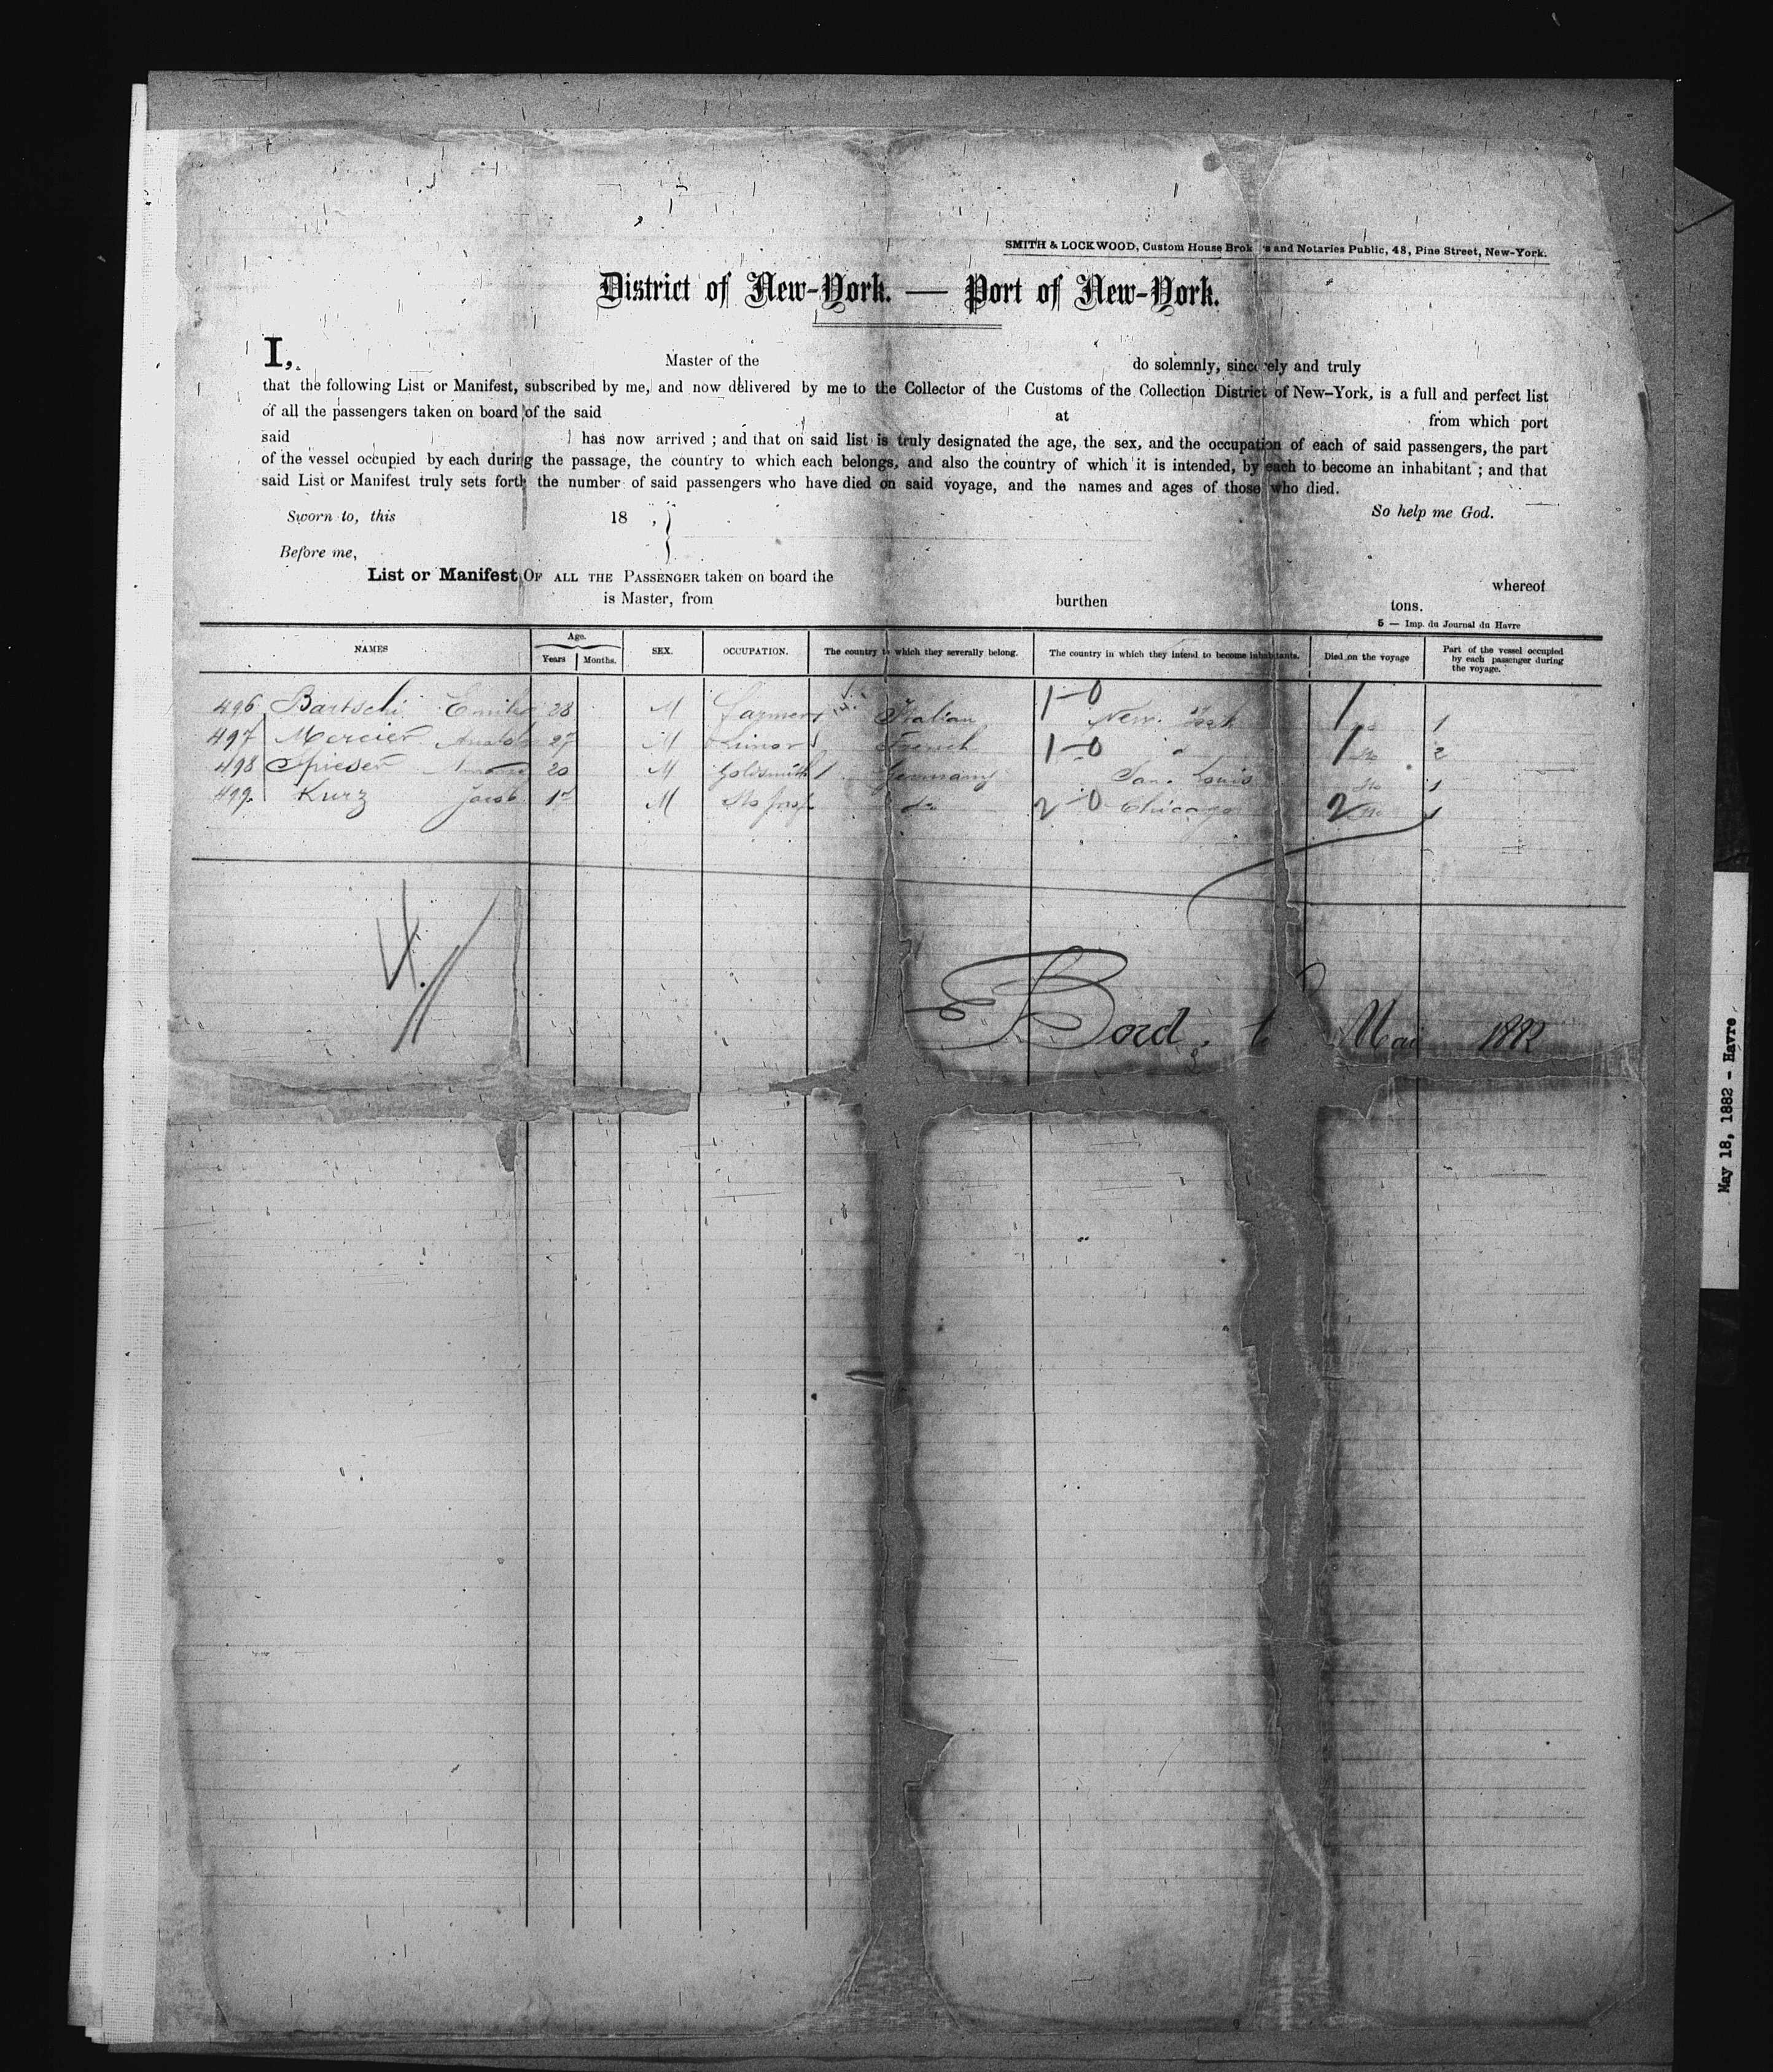 SMITH & LOCKWOOD, Custom House Brok s and Notaries Public, 48, Pine Street, New-York.
District of New-York. — Port of New-York.
I, Master of the do solemnly, sincerely and truly
that the following List or Manifest, subscribed by me, and now delivered by me to the Collector of the Customs of the Collection District of New-York, is a full and perfect list
of all the passengers taken on board of the said at from which port
said has now arrived ; and that on said list is truly designated the age, the sex, and the occupation of each of said passengers, the part
of the vessel occupied by each during the passage, the country to which each belongs, and also the country of which it is intended, by each to become an inhabitant ; and that
said List or Manifest truly sets forth the number of said passengers who have died on said voyage, and the names and ages of those who died.
Sworn to, this 18 , So help me God.
Before me,
List or Manifest OF ALL THE PASSENGER taken on board the whereof
is Master, from burthen tons.
5 — Imp. du Journal du Havre
NAMES Age. Years Months. SEX. OCCUPATION. The country to which they severally belong. The country in which they intend to become inhabitants. Died on the voyage Part of the vessel occupied by each passenger during the voyage.
496 Bartschi Emile 28 M farmer Italian 1-0 New York 1 1
497 Mercier 27 M French 1-0 1 2
498 20 M Goldsmith 1 Germany San Louis 1
499 Kurz Jacob 17 M No prof do 2-0 Chicago 2 1
4
Bord. Mai 1882
May 18, 1882 - Havre